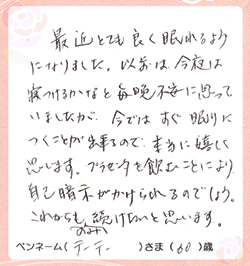 最近とても良く眠れるよう
になりました。以前は今夜は
寝つけるかなと毎晩不安に思って
いましたが、今ではすぐ眠りに
つくことが出来るので、本当に嬉しく
思います。プラセンタを飲むことにより
自己暗示がかけられるのでしょう。
これからものみ続けたいと思います。
ペンネーム(テーテー)さま(60)歳